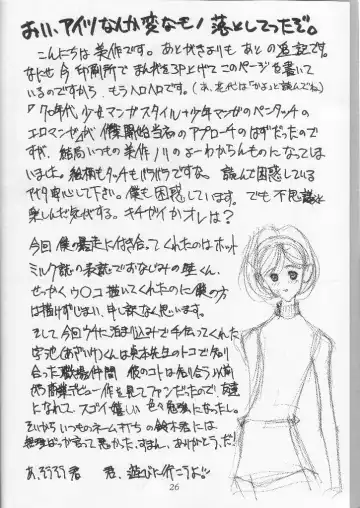 おい、アイツなんか変なモノ落としてったぞ。
こんにちは美作です。あとがきよりもあとの追記です。
なにせ今印刷所でまんがを3P上げてこのページを書いて
いるのですから、もうヘロヘロです。
「70年代少女マンガスタイル+少年マンガのペンタッチの
エロマンガ」が僕開始当初のアプローチのはずだったので
すが、結局いつもの美作ノリのよーわからんものになってしま
いました。絵柄もタッチもバラバラですな。読んで困惑している
安心して下さい。僕も困惑しています。でも不思議と
楽しんだ気がする。キチガイかオレは?
今回僕の暴走に付き合ってくれたのはホット
ミルク誌の表誌でおなじみの くん、
せっかくウ○コ描いてくれたのに僕の方
は描けずじまい、申し訳なく思います。
そして今回ウチに泊まり込みで手伝ってくれた
くんは 先生のトコで知り
合った職場仲間 彼のコトは知り合う以前
から商業デビュー作を見てファンだったので、友達
になれてスゴイ嬉しい 色々勉強になったし。
それからいつものネーム打ちの鈴木君には
無理ばっか言って悪かった、すまん、ありがとう、だ!
あ、そうそう君 君、遊びに行こうよ!!
26